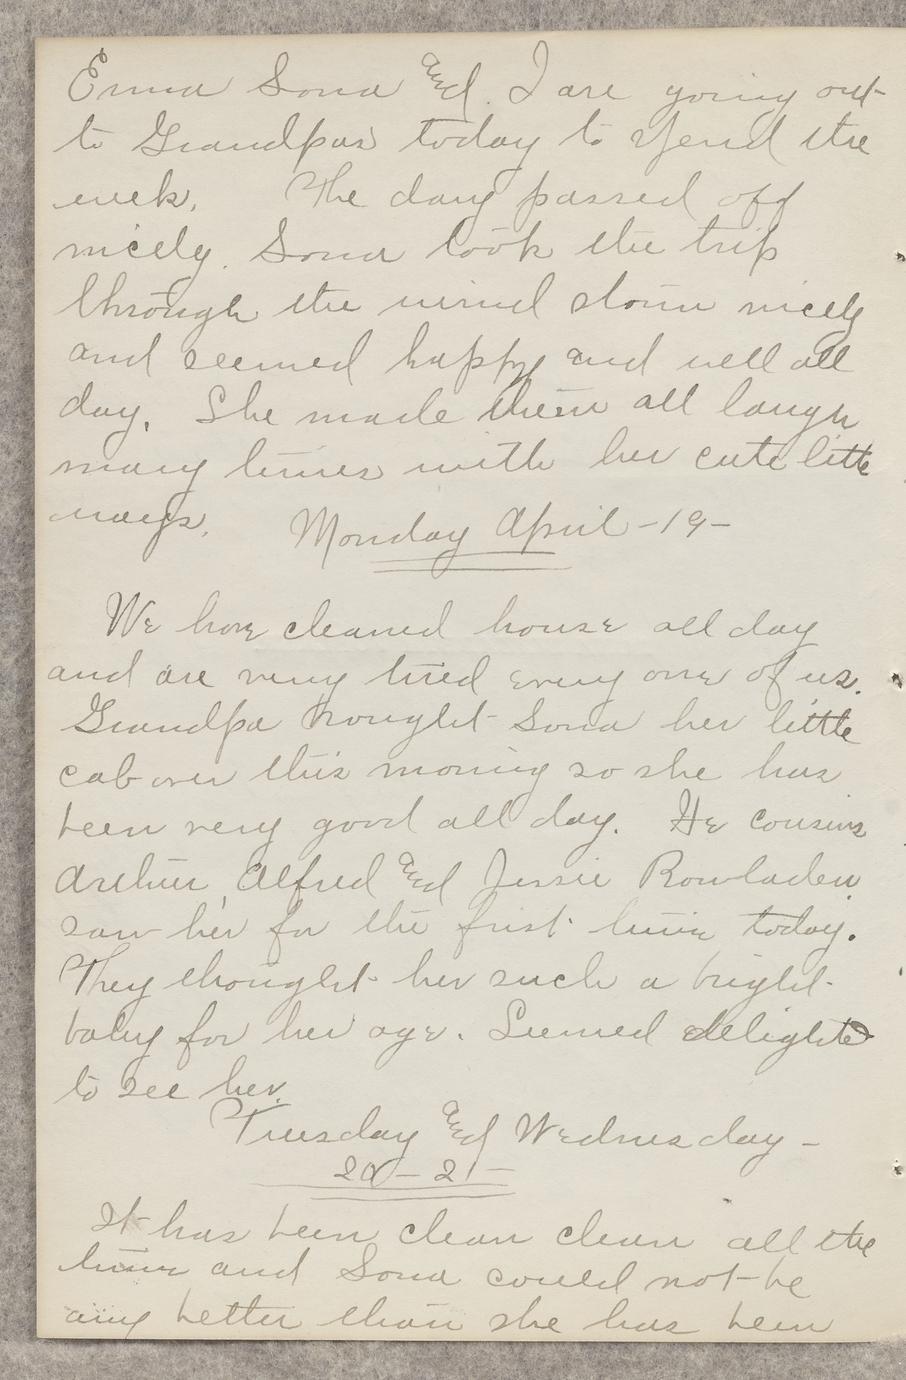 Emma Sona and I are going out
to Grandpas today to spend the
week. The day passed off
nicely. Sona took the trip
through the wind storm nicely
and seemed happy and well all
day. She made them all laugh
many times with her cute little
ways. Monday April -19-
We have cleaned house all day
and are very tired every one of us.
Grandpa brought Sona her little
cab over this moning so she has
been very good all day. He cousins
Arthur, Alfred and Jessie Rowladen
saw her for the frist time today.
They thought her such a bright
baby for her age. Seemed delighted
to see her.
Tuesday and Wednesday -
20 - 21 -
It has been clean clean all the
time and Sona could not be
any better than she has been